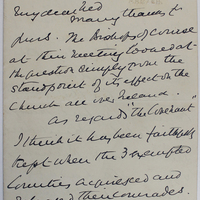 My dear Fred
Many thanks for
yours. The Bishops of course
at their meeting looked at
the question simply from the
standpoint of its effect on the
Church all over Ireland.
As regards "the Covenant"
I think it has been faithfully
kept when the 3 excepted
Counties acquiesced and
their Comrades.